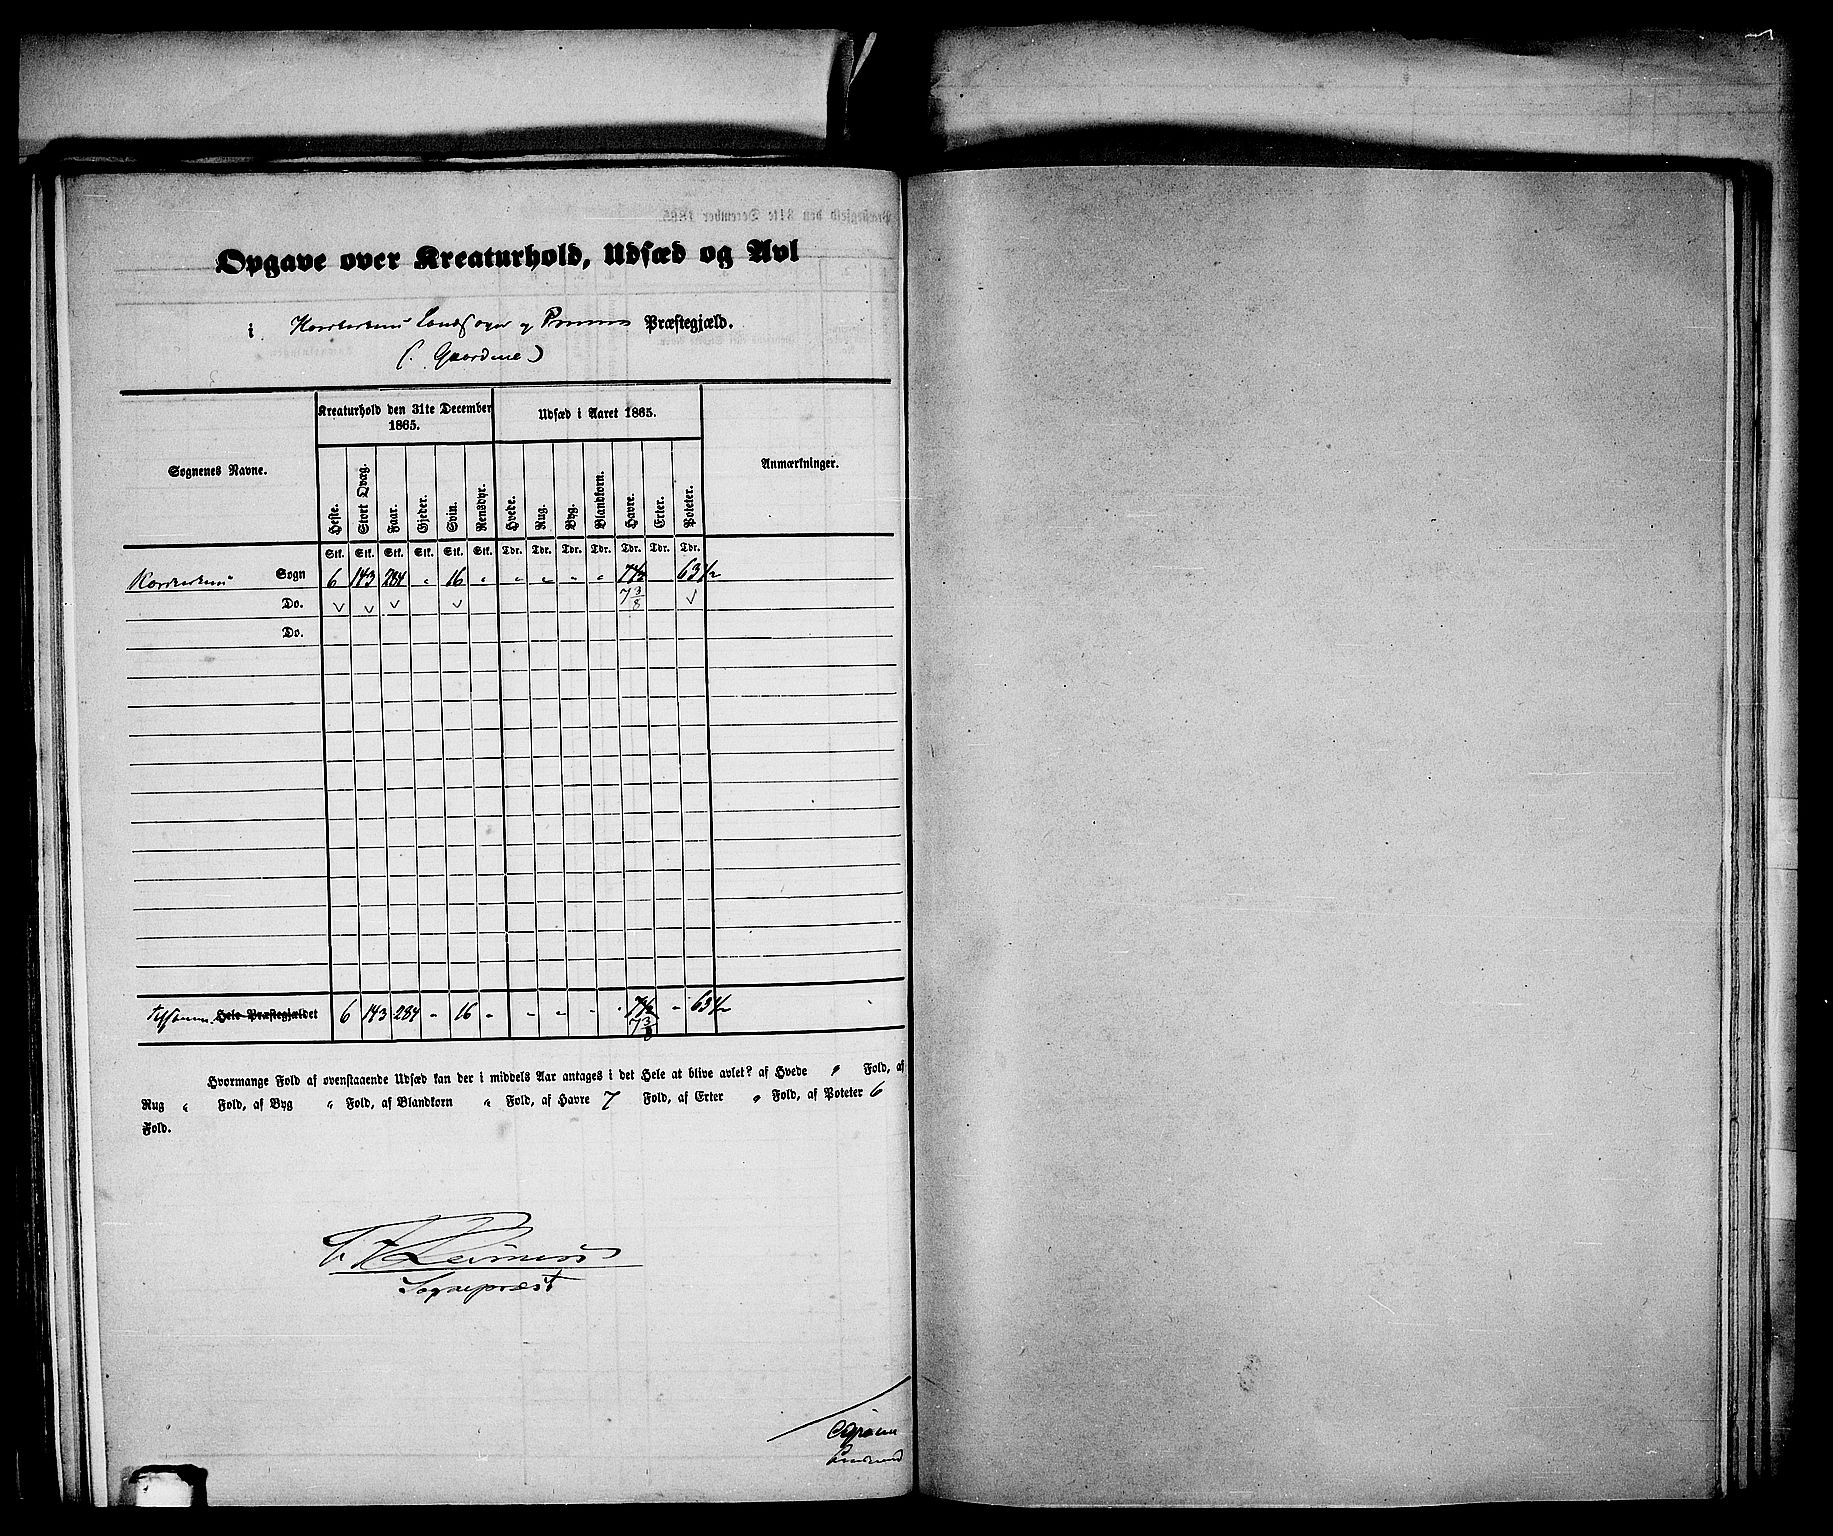 Opgave over Kreaturhold, Udsæd og Avl
i Landsogn og Præstegjæld.
(: Gaardene )
Sognenes Navne.
Kreaturhold den 31te December 1865.
Udsæd i Aaret 1865.
Anmærkninger.
Heste. Stort Qvæg. Faar. Gjeder. Svin. Rensdyr. Hvede. Rug. Byg. Blandkorn. Havre. Erter. Poteter.
Stk. Stk. Stk. Stk. Stk. Stk. Tdr. Tdr. Tdr. Tdr. Tdr. Tdr. Tdr.
Sogn 6 143 284 " 16 " " " " " 63 1/2
Do. ✓ ✓ ✓ ✓ 7 3/8 ✓
Do.
Tilsammen. Hele Præstegjældet 6 143 284 " 16 " " " " " " 63 1/2
7 3/8
Hvormange Fold af ovenstaaende Udsæd kan der i middels Aar antages i det Hele at blive avlet? af Hvede " Fold, af
Rug " Fold, af Byg " Fold, af Blandkorn " Fold, af Havre 7 Fold, af Erter " Fold, af Poteter 6
Fold.
Sognepræst